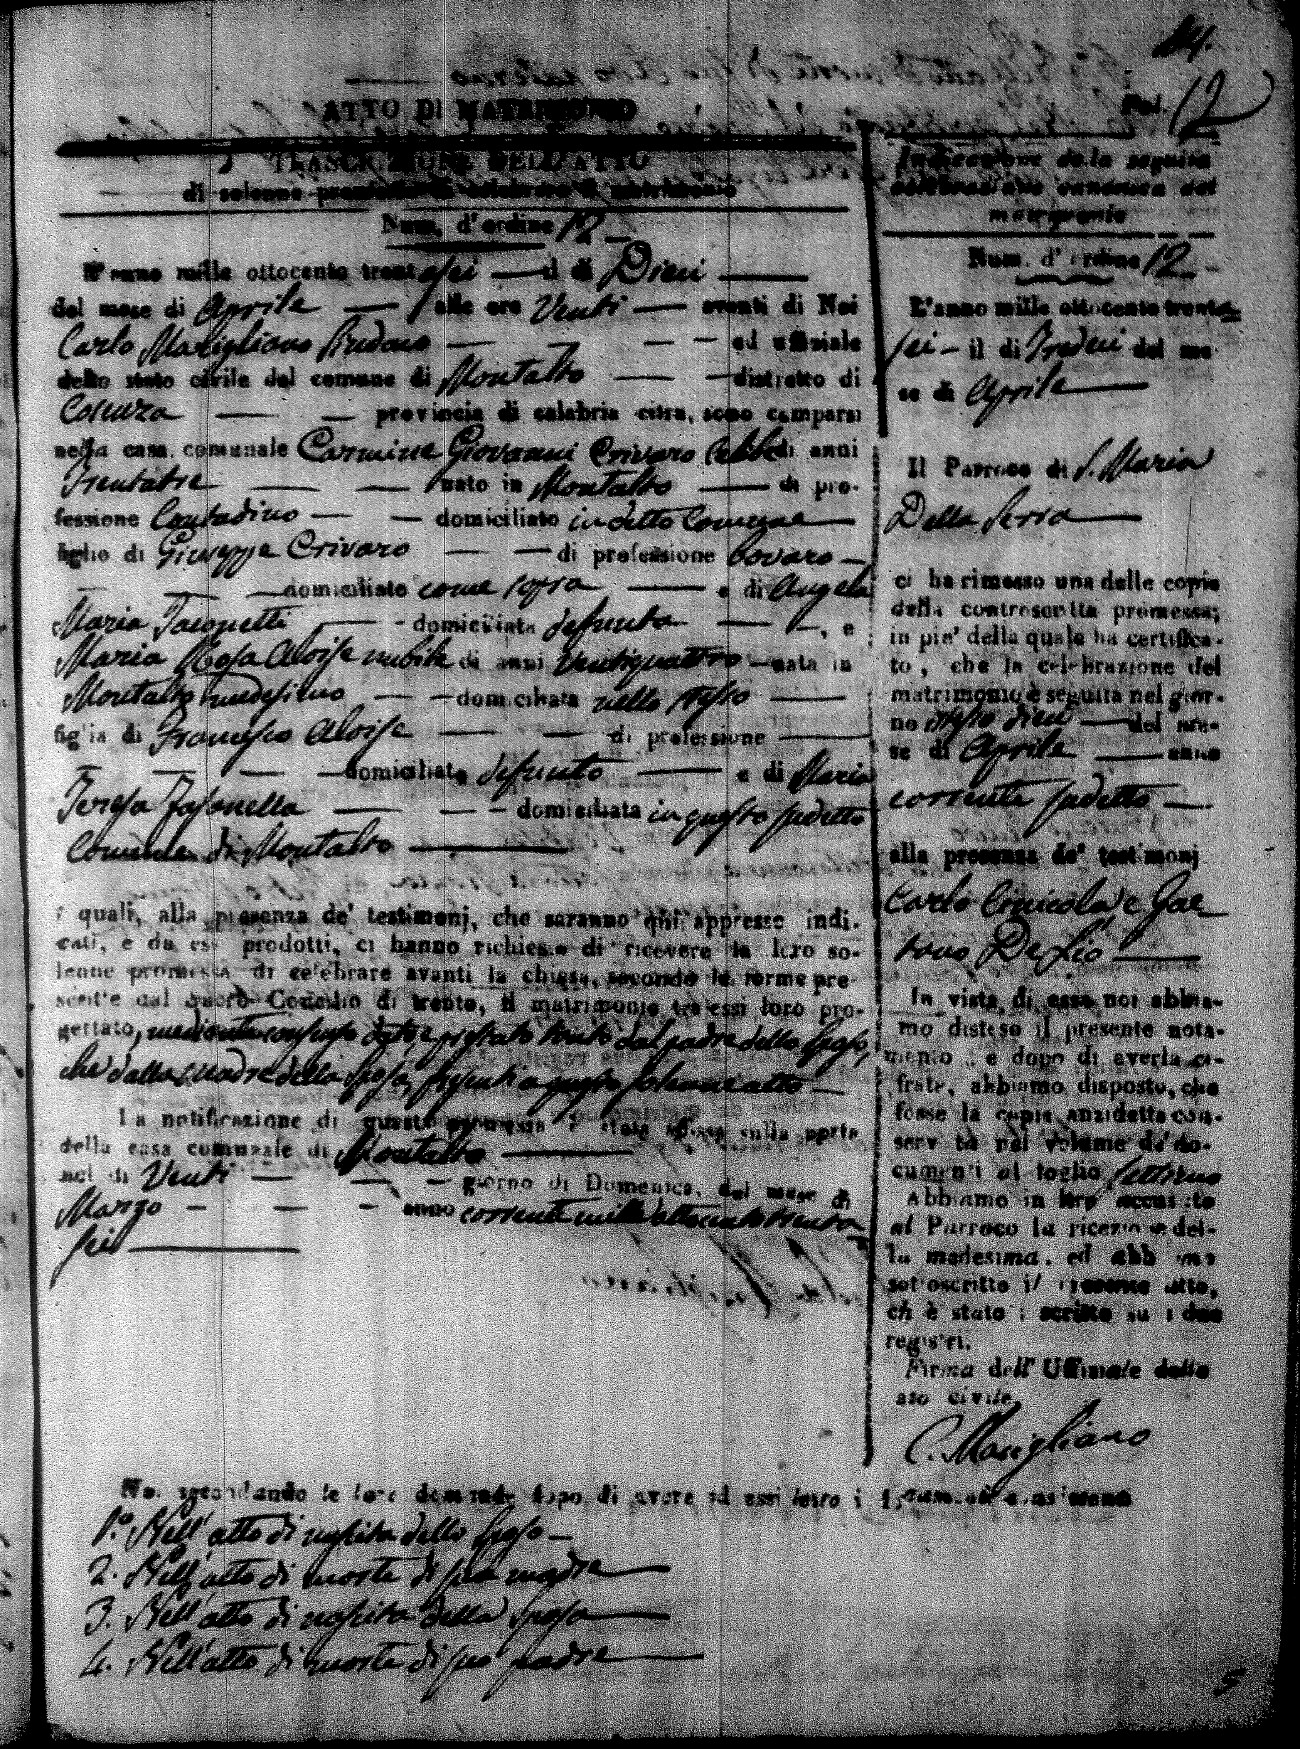 14.
Fol. 12
ATTO DI MATRIMONIO
TRASCRIZIONE DELL'ATTO
di solenne promessa di celebrare il matrimonio
Num. d'ordine 12
L'anno mille ottocento trentasei il dì Dieci
del mese di Aprile alle ore Venti avanti di Noi
Carlo Marigliano ed uffiziale
dello stato civile del comune di Montalto distretto di
Cosenza provincia di calabria citra, sono comparsi
nella casa comunale Carmine Giovanni Crivaro Celibe di anni
Trentatre nato in Montalto di pro-
fessione Contadino domiciliato in detto Comune
figlio di Giuseppe Crivaro di professione bovaro
domiciliato come sopra e di Angela
Maria Iaconetti domiciliata defunta, e
Maria Rosa Aloise nubile di anni Ventiquattro nata in
Montalto medesimo domiciliata nello stesso
figlia di Francesco Aloise di professione
domiciliato defunto e di Maria
Teresa Fasanella domiciliata in questo sudetto
Comune di Montalto
i quali, alla presenza de' testimonj, che saranno qui appresso indi-
cati, e da essi prodotti, ci hanno richiesto di ricevere la loro so-
lenne promessa di celebrare avanti la chiesa, secondo le forme pre-
scritte dal Sacro Concilio di trento, il matrimonio tra essi loro pro-
gettato, mediante consenso dato, e prestato tanto dal padre dello sposo,
che dalla madre della sposa, presenti a questo solenne atto
La notificazione di questa promessa è stata affissa sulla porta
della casa comunale di Montalto
nel dì Venti giorno di Domenica, del mese di
Marzo anno corrente mille ottocento trenta
sei
No. secondando le loro domande dopo di avere ad essi letto i documenti consistenti
1.° Nell'atto di nascita dello sposo
2. Nell'atto di morte di sua madre
3. Nell'atto di nascita della sposa
4. Nell'atto di morte di suo padre
Indicazione della seguita
celebrazione canonica del
matrimonio
Num. d'ordine 12
L'anno mille ottocento trenta
sei il dì Tredici del me-
se di Aprile
Il Parroco di S. Maria
Della Serra
ci ha rimesso una delle copie
della controscritta promessa;
in pie' della quale ha certifica-
to, che la celebrazione del
matrimonio è seguita nel gior-
no stesso dieci del me-
se di Aprile anno
corrente sudetto
alla presenza de' testimonj
Carlo e Gae
tano
In vista di essa noi abbia-
mo disteso il presente nota-
mento, e dopo di averla ci-
frata, abbiamo disposto, che
fosse la copia anzidetta con-
servata nel volume de' do-
cumenti al foglio settimo
Abbiamo in fine accusato
al Parroco la ricezione del-
la medesima, ed abbiamo
sottoscritto il presente atto,
ch'è stato iscritto su i due
registri.
Firma dell'Uffiziale dello
stato civile
C. Marigliano
5